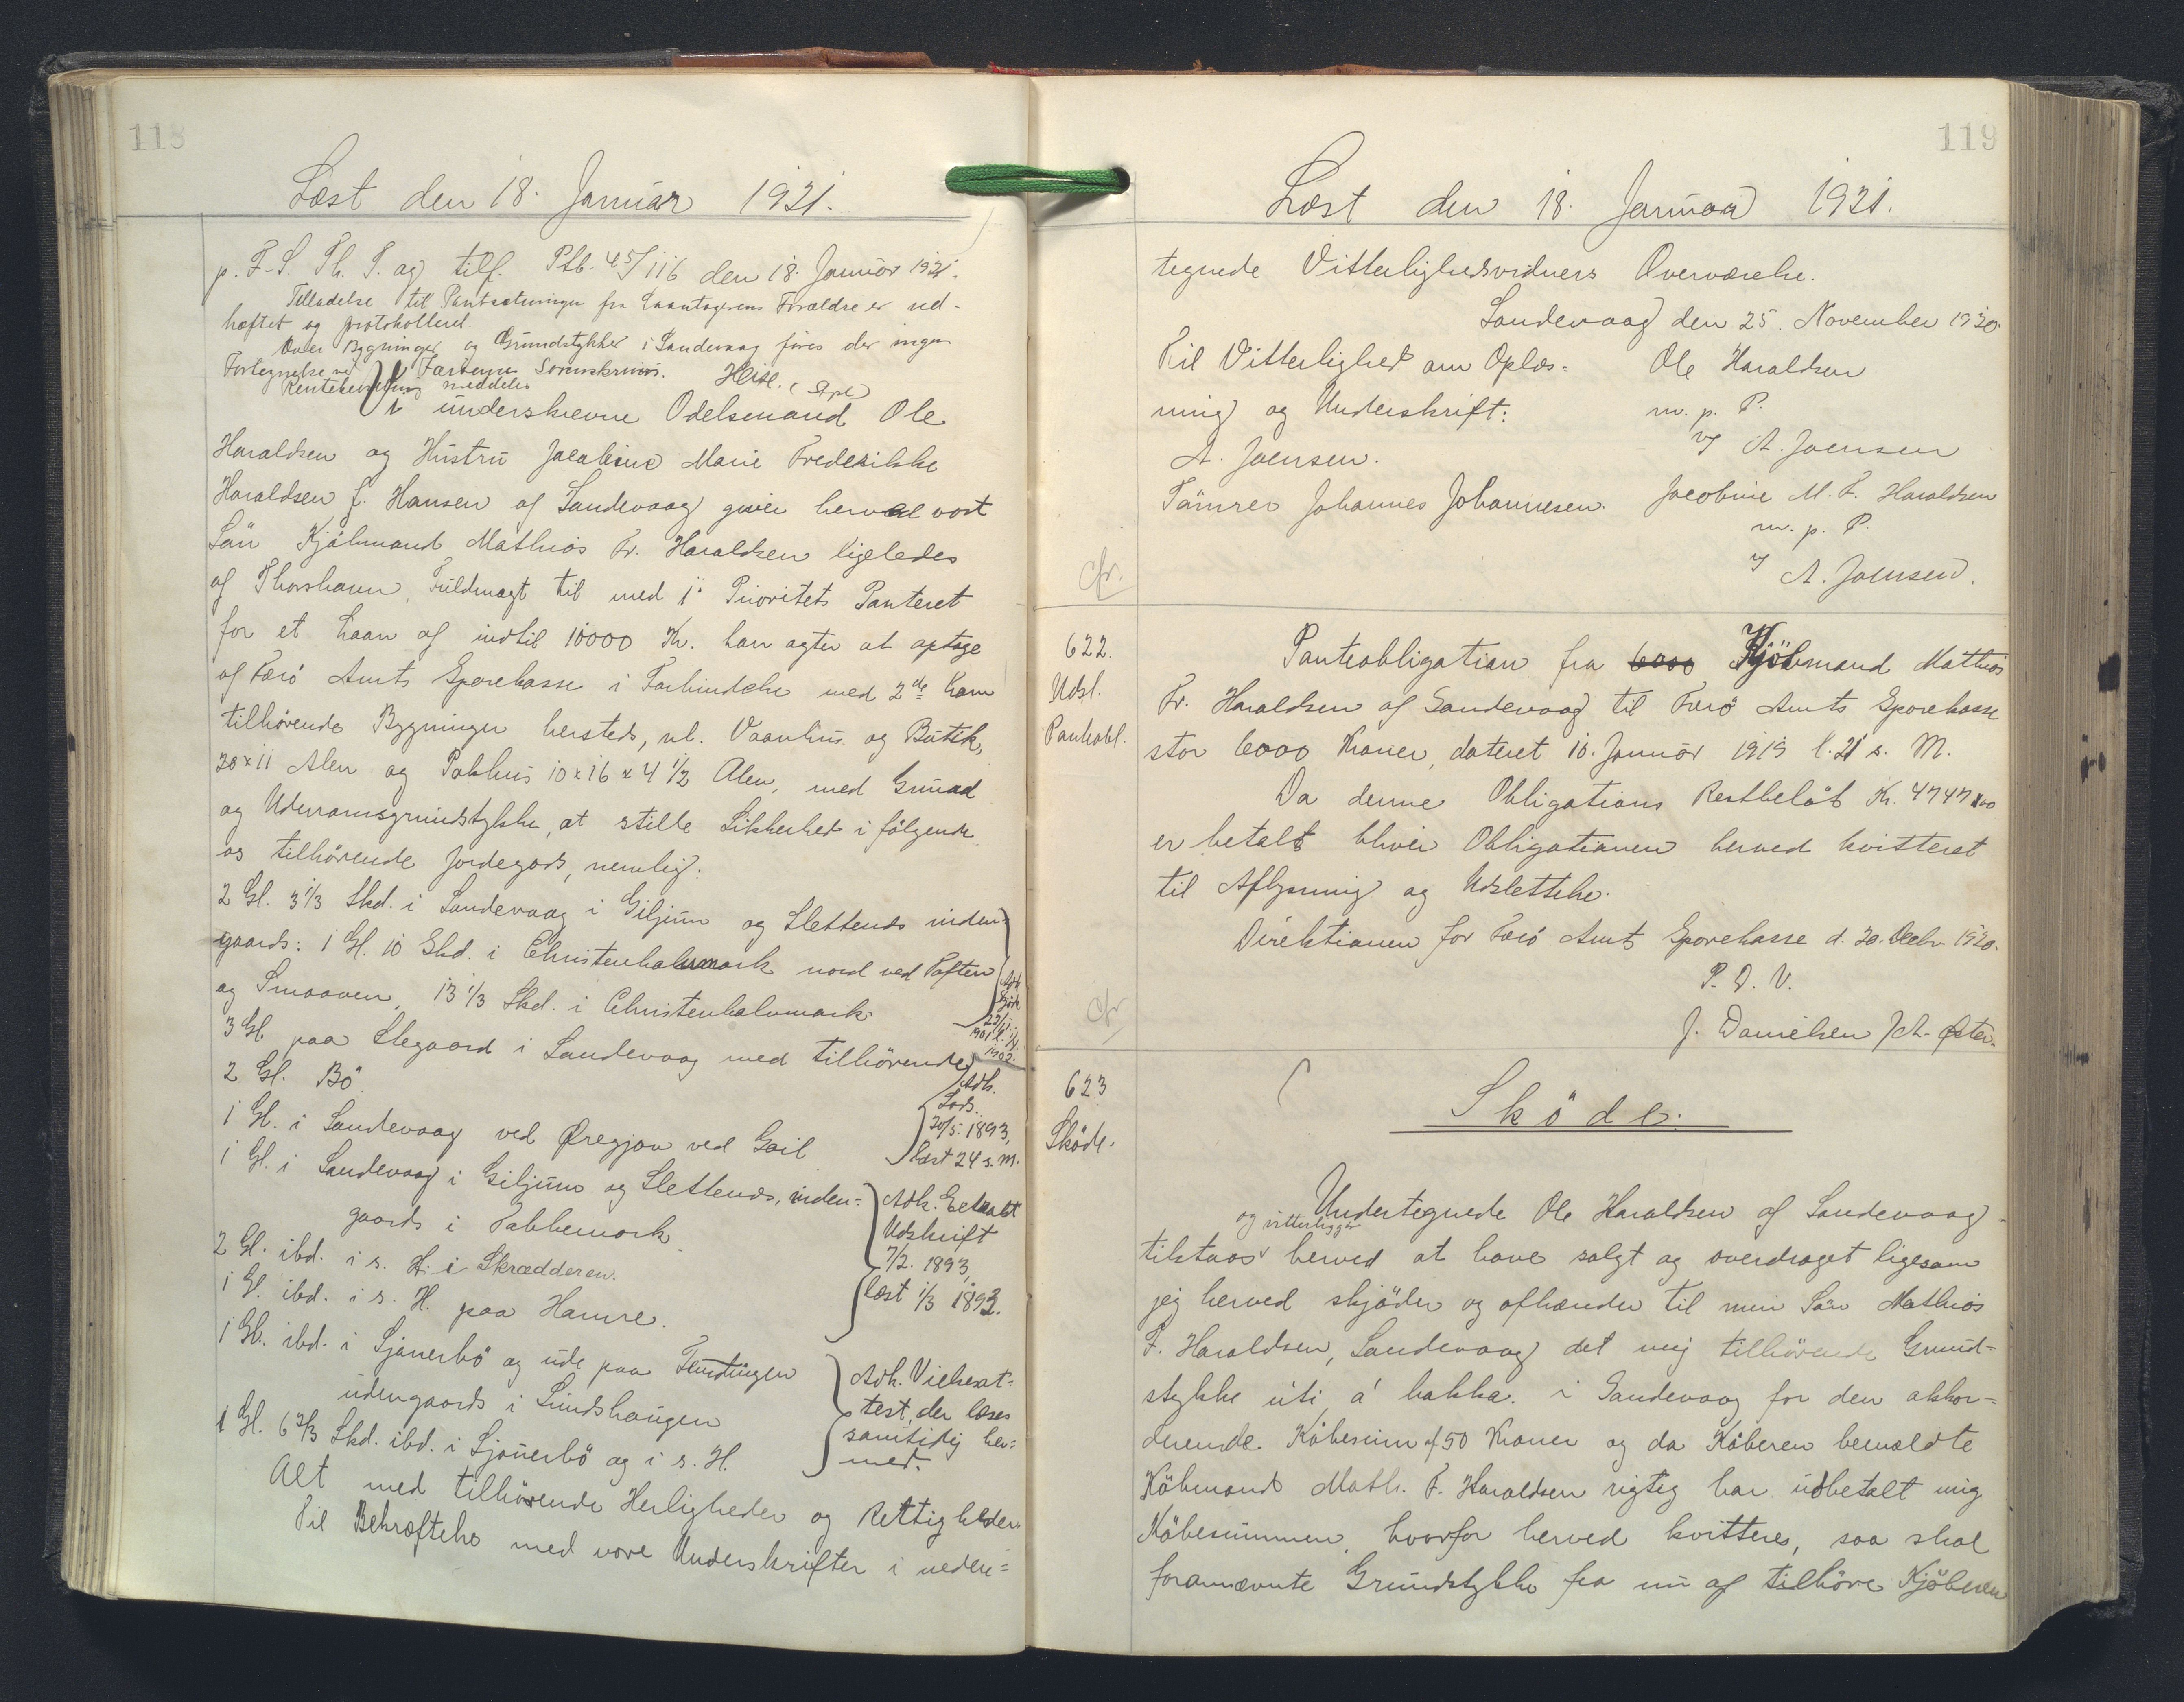 118
Læst den 18. Januar 1921.
p. F-S. Th. T. og tilf. Ptb. 45/116 den 18. Januar 1921.
Tilladelse til Pantsætningen fra Laantagerens Forældre er ved-
hæftet og protokolleret.
Over Bygninger og Grundstykker i Sandevaag føres der ingen
Fortegnelse ved Færøernes Sorenskriveri.
Rentebevilling meddeles
underskrevne Odelsmand Ole
Haraldsen og Hustru Jacobine Marie Frederikke
Haraldsen f. Hansen af Sandevaag giver herved vort
Sön Kjöbmand Mathias Fr. Haraldsen ligeledes
af Thorshavn, Fuldmagt til med 1' Prioritets Panteret
for et Laan af indtil 10000 Kr. han agter at optage
af Færö Amts Sparekasse i Forbindelse med 2de ham
tilhörende Bygninger hersteds, nl. Vaanhus og Butik,
20x11 Alen og Pakhus 10x16x4 1/2 Alen, med Grund
og Udenomsgrundstykke, at stille Sikkerhed i fölgende
os tilhörende Jordegods, nemlig:
2 Gl. 3 1/3 Skd. i Sandevaag i Giljum og Slettenes inden-
gaards: 1 Gl. 10 Skd. i Christenhalvmark nord ved Toften
og Smaaven, 13 1/3 Skd. i Christenhalvmark
3 Gl. paa Stegaard i Sandevaag med tilhörende
2 Gl. Bö
Adk.
20/5. 1893,
læst 24 s. M.
1 Gl. i Sandevaag ved Øregjov ved Gail
1 Gl. i Sandevaag i Giljum og Slettenes, inden-
gaards i Tabbemark
2 Gl. ibd. i s. H. i Skrædderen.
1 Gl. ibd. i s. H. paa Hamre.
Adk. Extrakt
Udskrift
7/2. 1893,
læst 1/3 1893.
1 Gl. ibd. i Sjanerbö og ude paa Tendingen
udengaards i Lundshaugen
1 Gl. 6 2/3 Skd. ibd. i Sjanerbö og i s. H.
Adk. Vielsesat-
test, der læses
samtidig her-
med.
Alt med tilhörende Herligheder og Rettigheder.
Til Bekræftelse med vore Underskrifter i neden-
119
Læst den 18. Januar 1921.
tegnede Vitterlighedsvidners Overværelse.
Sandevaag den 25. November 1920.
Til Vitterlighed om Oplæs- Ole Haraldsen
ning og Underskrift: m. p. P.
v/ A. Joensen
A. Joensen.
Tömrer Johannes Johannesen. Jacobine M. F. Haraldsen
m. p. P.
v/ A. Joensen.
cfr.
622.
Udsl.
Panteobl.
Panteobligation fra 6000 Kjöbmand Mathias
Fr. Haraldsen af Sandevaag til Færö Amts Sparekasse
stor 6000 Kroner, dateret 10. Januar 1919 l. 21 s. M.
Da denne Obligations Restbelöb Kr. 4747 00
er betalt bliver Obligationen herved kvitteret
til Aflysning og Udslettelse.
Direktionen for Færö Amts Sparekasse d. 30. Decbr. 1920.
P. D. V.
J. Danielsen / A. Øster.
cfr.
623
Sköde.
Sköde.
Undertegnede Ole Haraldsen af Sandevaag
og vitterliggör
tilstaar herved at have solgt og overdraget ligesom
jeg herved skjöder og afhænder til min Sön Mathias
F. Haraldsen, Sandevaag det mig tilhörende Grund-
stykke úti á bakka. i Sandevaag for den akkor-
derende. Köbesum af 50 Kroner og da Köberen bemældte
Köbmand Math. F. Haraldsen rigtig har udbetalt mig
Köbesummen, hvorfor herved kvitteres, saa skal
forannævnte Grundstykke fra nu af tilhöre Kjöberen